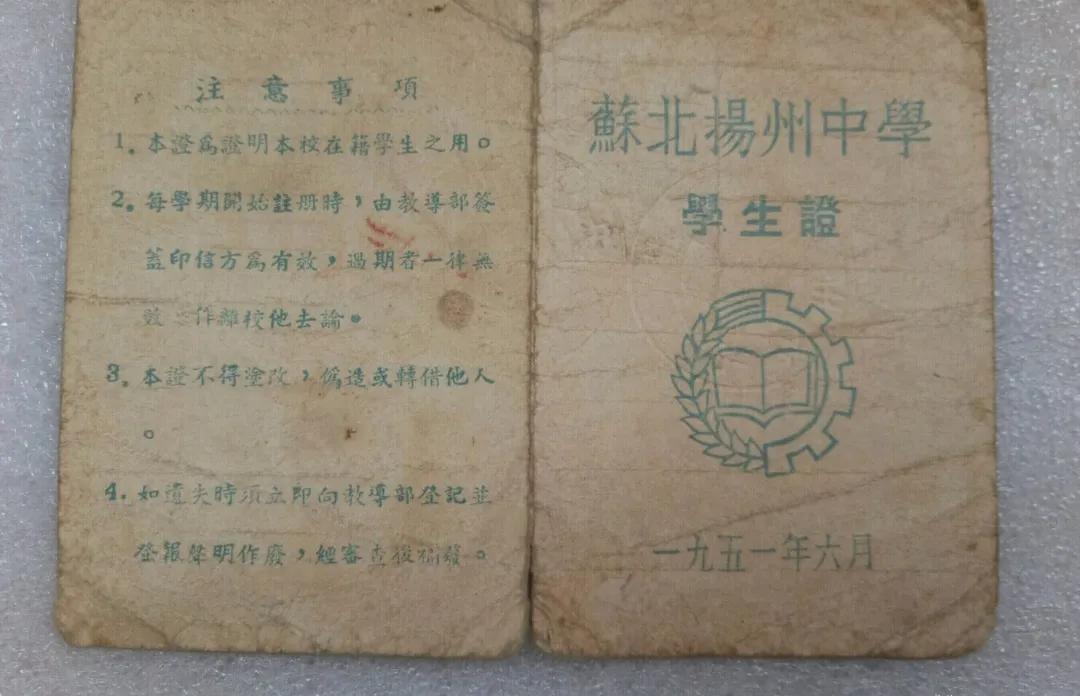 注意事項
1. 本證爲證明本校在籍學生之用。
2. 每學期開始註册時，由教導部簽
蓋印信方爲有效，過期者一律無
效 作離校他去論。
3. 本證不得塗改，僞造或轉借他人
。
4. 如遺失時須立即向教導部登記並
登報聲明作廢，經審查後補發。
蘇北揚州中學
學生證
一九五一年六月